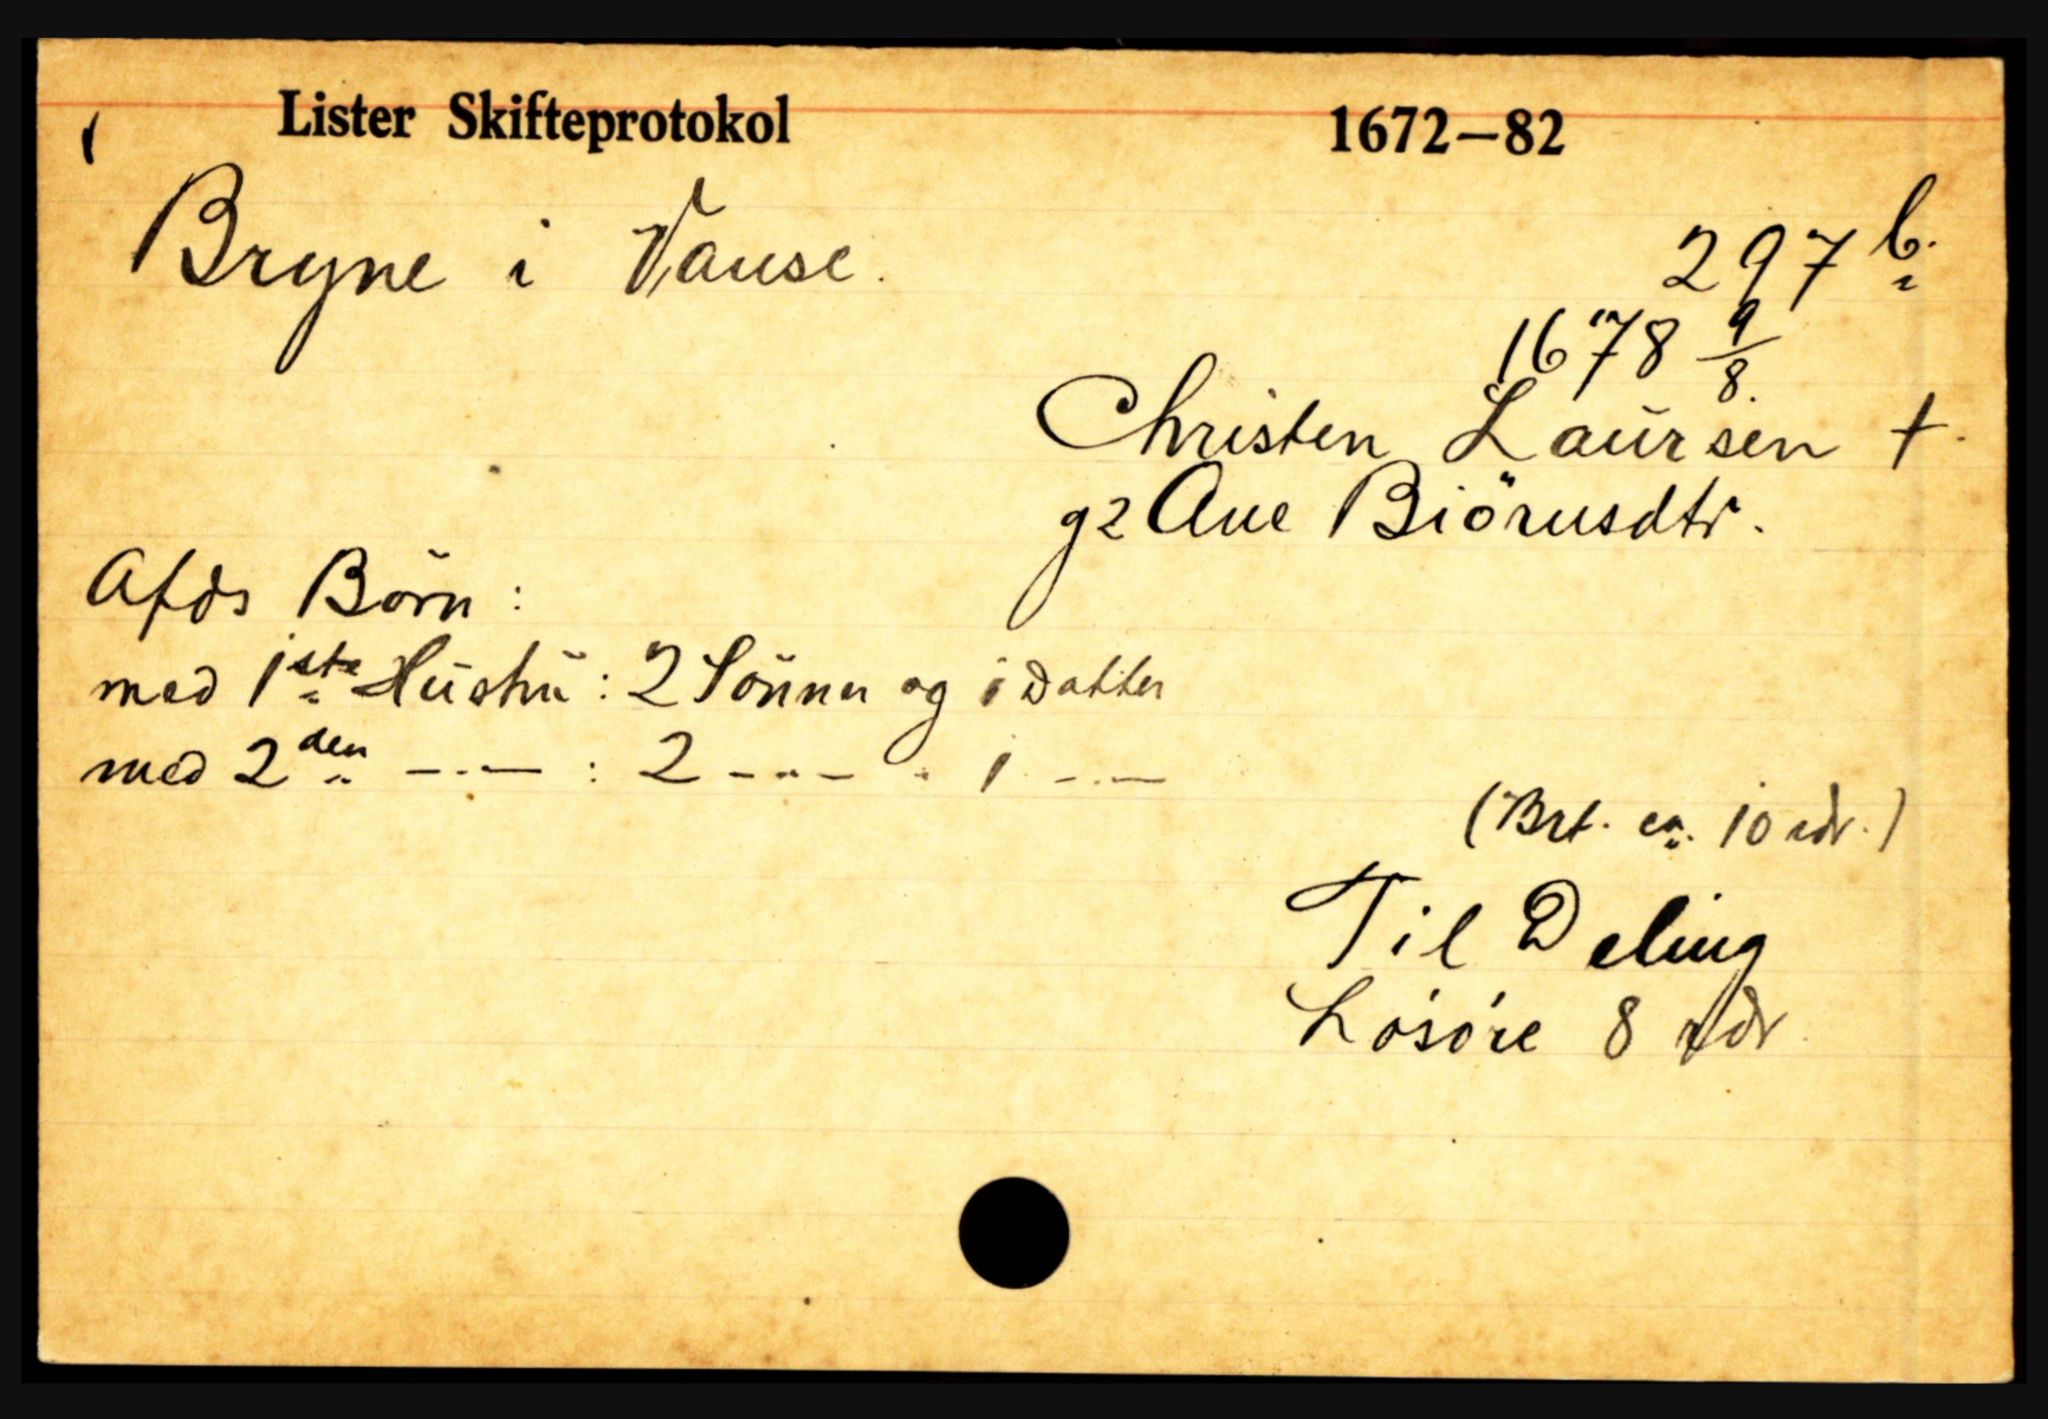 Lister Skifteprotokol 1672-82
Bryne i Vanse.
297 b.
1678 9/8.
Christen Laursen †.
g2 Ane Biörnsdtr.
Afds Börn:
med 1ste Hustru: 2 Sönner og 1 Datter
med 2den -.- : 2 -.- . 1 -.-
(Brt. ca. 10 rdr.)
Til Deling
Lösöre 8 rdr